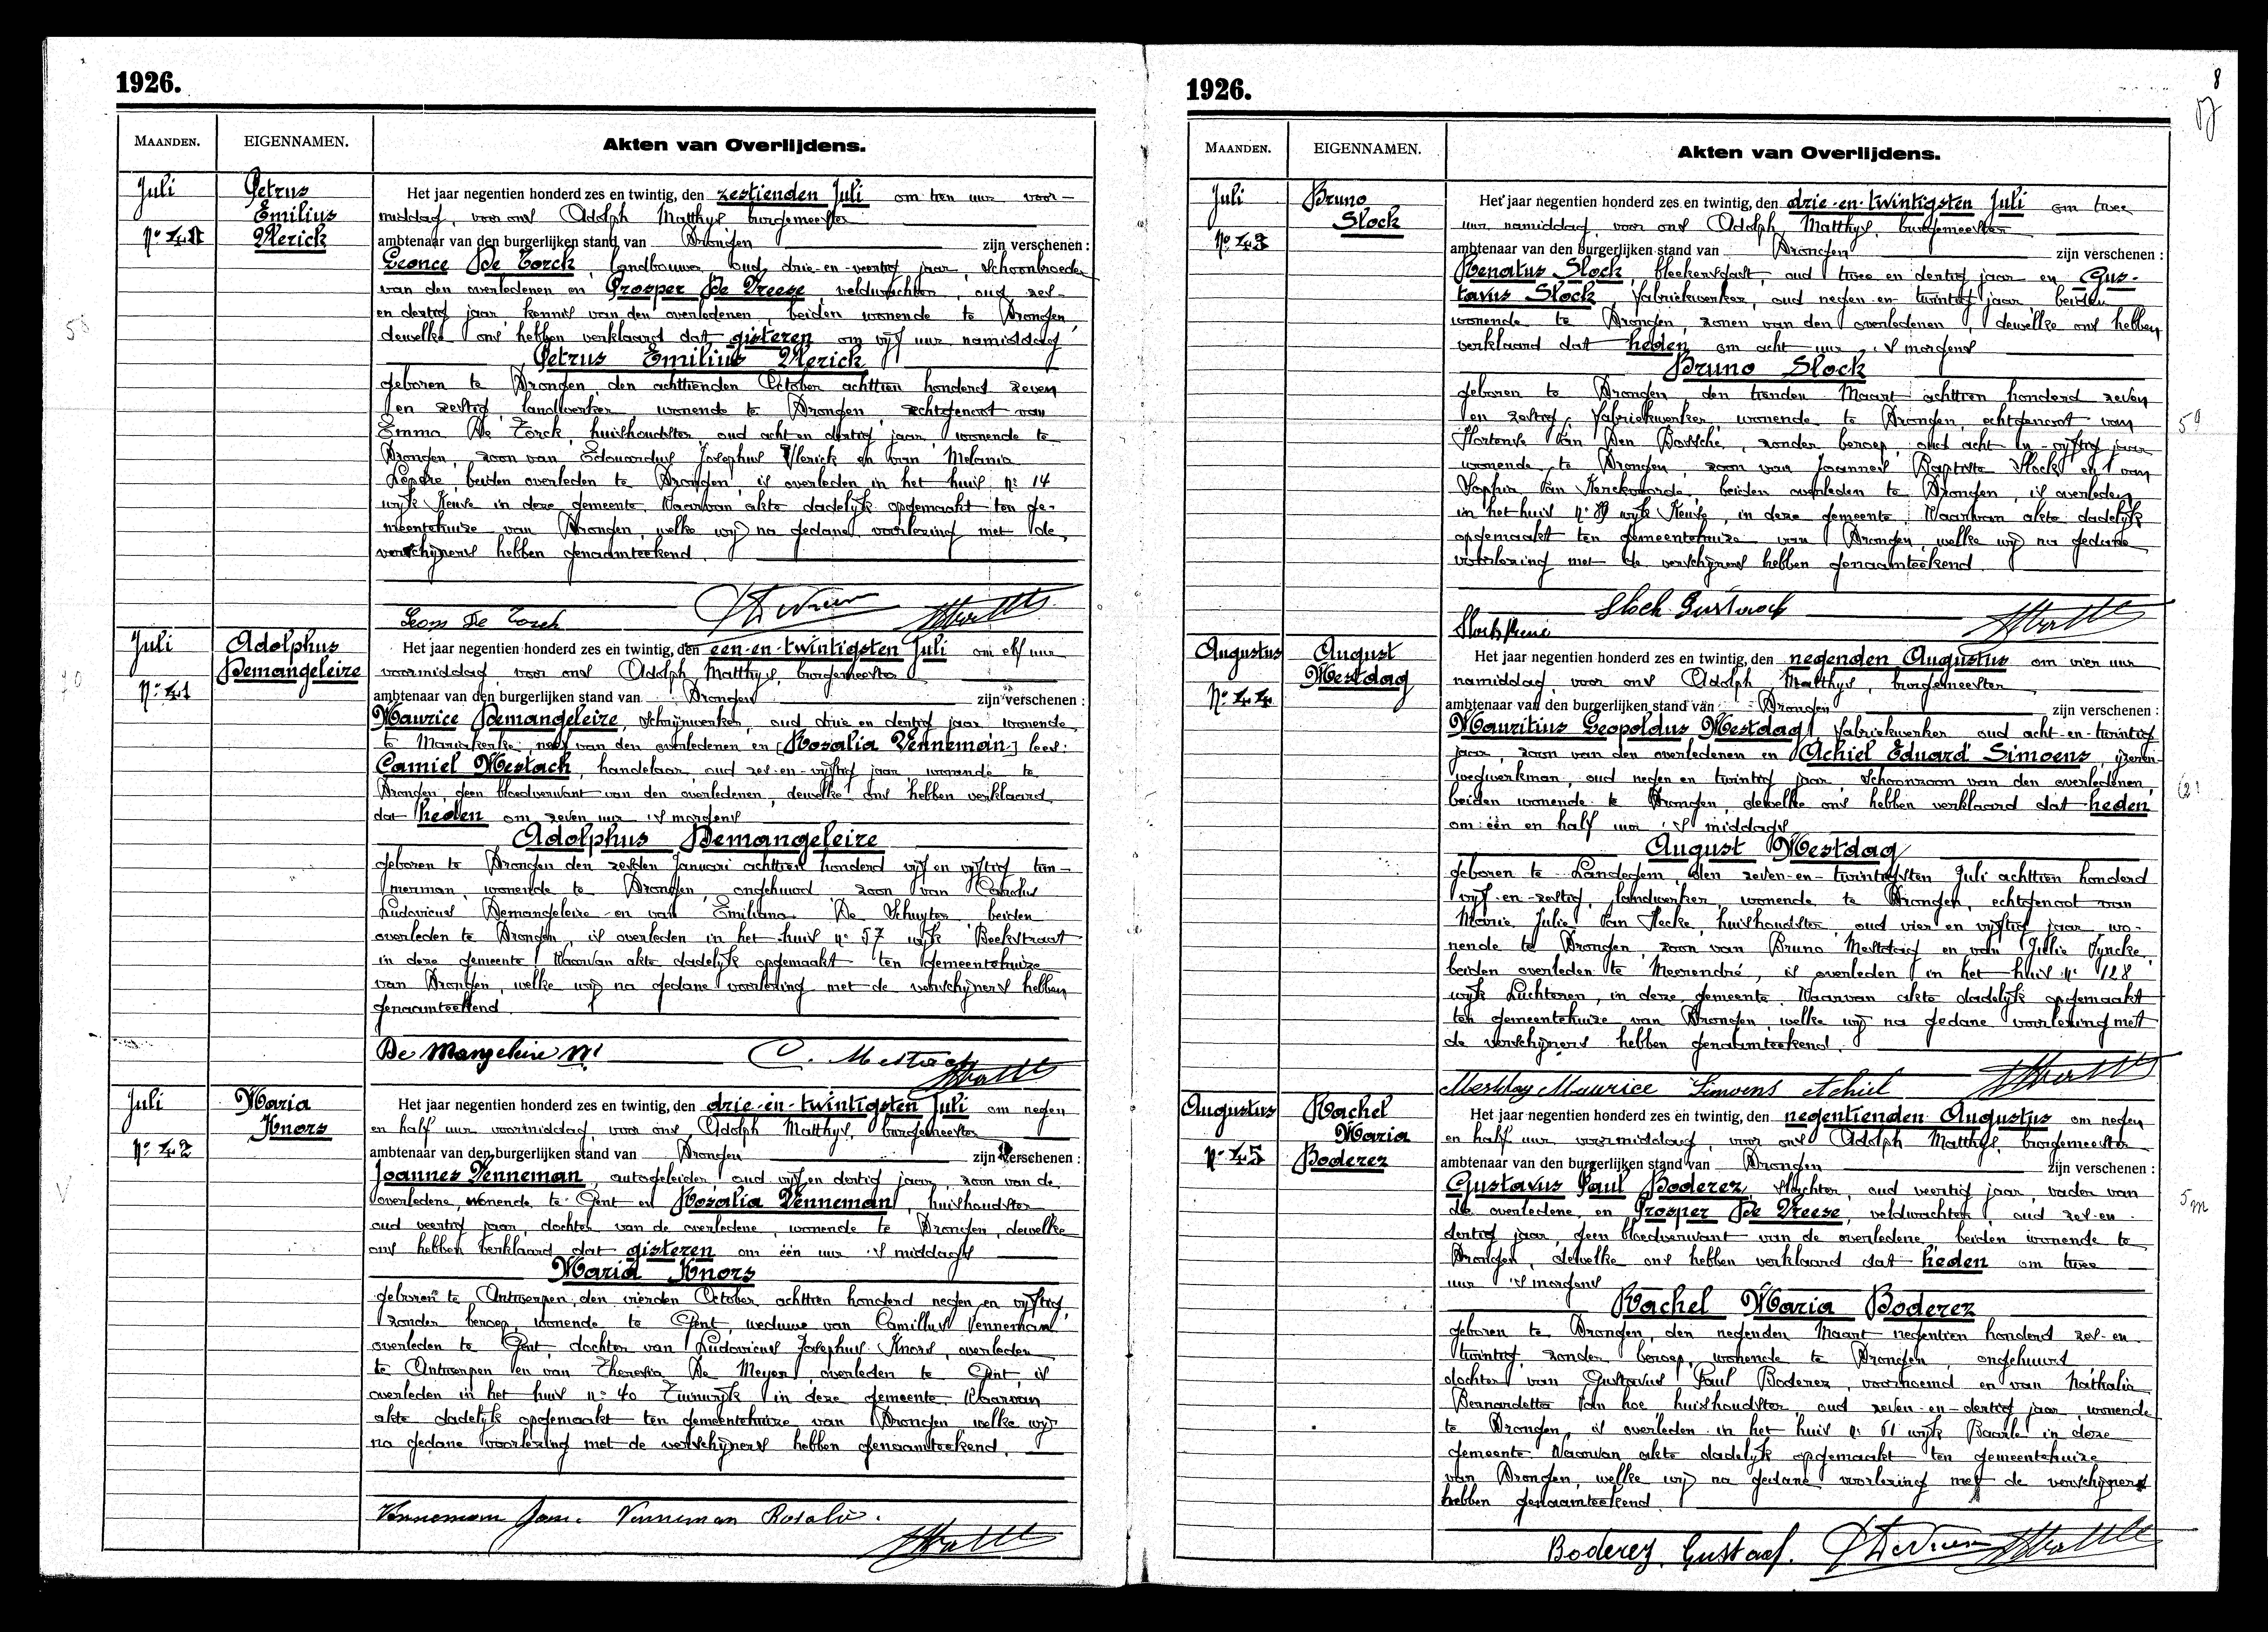 1926.
MAANDEN.
EIGENNAMEN.
Akten van Overlijdens.
Juli
Petrus
Emilius
Vlerick
Het jaar negentien honderd zes en twintig, den zestienden Juli om tien uur voor-
middag, voor ons Adolph Matthys burgemeester
ambtenaar van den burgerlijken stand van Drongen zijn verschenen :
Leonce De Torck, landbouwer, oud drie-en-veertig jaar, schoonbroeder
van den overledenen en Prosper De Vreese, veldwachter, oud zes-
en dertig jaar, kennis van den overledenen, beiden wonende te Drongen,
dewelke ons hebben verklaard dat gisteren om vijf uur namiddag
Petrus Emilius Vlerick
geboren te Drongen, den achttienden October achttien honderd zeven
en zestig, landwerker, wonende te Drongen, echtgenoot van
Emma De Torck, huishoudster, oud acht en dertig jaar, wonende te
Drongen, zoon van Edouardus Josephus Vlerick en van Melania
beiden overleden te Drongen, is overleden in het huis n° 14
wijk Keuze in deze gemeente. Waarvan akte dadelijk opgemaakt ten ge-
meentehuize van Drongen, welke wij na gedane voorlezing met de
verschijners hebben genaamteekend.
Leon De Torck
Juli
N° 41
Adolphus
Demangeleire
Het jaar negentien honderd zes en twintig, den een-en-twintigsten Juli om elf uur
voormiddag, voor ons Adolph Matthys, burgemeester
ambtenaar van den burgerlijken stand van Drongen zijn verschenen :
Maurice Demangeleire, schrijnwerker, oud drie en dertig jaar, wonende
te Mariakerke, neef van den overledenen en [Rosalia Venneman] lees:
Camiel Mestach, handelaar, oud zes-en-vijftig jaar, wonende te
Drongen, geen bloedverwant van den overledenen, dewelke ons hebben verklaard
dat heden om zeven uur 's morgens
Adolphus Demangeleire
geboren te Drongen den zesden Januari achttien honderd vijf en vijftig, tim-
merman, wonende te Drongen, ongehuwd zoon van Carolus
Ludovicus Demangeleire en van Emiliana De Schuyter, beiden
overleden te Drongen, is overleden in het huis n° 57 wijk Beekstraat
in deze gemeente. Waarvan akte dadelijk opgemaakt ten gemeentehuize
van Drongen, welke wij na gedane voorlezing met de verschijners hebben
genaamteekend.
De Mangeleire M.
C. Mestach
Juli
N° 42
Maria
Knors
Het jaar negentien honderd zes en twintig, den drie-en-twintigsten Juli om negen
en half uur voormiddag, voor ons Adolph Matthys, burgemeester
ambtenaar van den burgerlijken stand van Drongen zijn verschenen :
Joannes Venneman, autogeleider, oud vijf en dertig jaar, zoon van de
overledene, wonende te Gent en Rosalia Venneman, huishoudster
oud veertig jaar, dochter van de overledene, wonende te Drongen, dewelke
ons hebben verklaard dat gisteren om één uur 's middags
Maria Knors
geboren te Antwerpen, den vierden October achttien honderd negen en vijftig,
zonder beroep, wonende te Gent, weduwe van Camillus Venneman
overleden te Gent, dochter van Ludovicus Josephus Knors, overleden
te Antwerpen en van Theresia De Meyer, overleden te Gent, is
overleden in het huis n° 40 in deze gemeente. Waarvan
akte dadelijk opgemaakt ten gemeentehuize van Drongen welke wij
na gedane voorlezing met de verschijners hebben genaamteekend.
Venneman Jan. Venneman Rosalie.
1926.
8
MAANDEN.
EIGENNAMEN.
Akten van Overlijdens.
Juli
N° 43
Bruno
Slock
Het jaar negentien honderd zes en twintig, den drie-en-twintigsten Juli om twee
uur namiddag, voor ons Adolph Matthys, burgemeester
ambtenaar van den burgerlijken stand van Drongen zijn verschenen :
Renatus Slock, bleekersgast, oud twee en dertig jaar en Gus-
tavus Slock, fabriekwerker, oud negen-en-twintig jaar, beiden
wonende te Drongen, zonen van den overledenen, dewelke ons hebben
verklaard dat heden om acht uur 's morgens
Bruno Slock
geboren te Drongen, den tienden Maart achttien honderd zeven
en zestig, fabriekwerker, wonende te Drongen, echtgenoot van
Hortense Van Den Bossche, zonder beroep, oud acht en vijftig jaar
wonende te Drongen, zoon van Joannes Baptiste Slock en van
Sophia Van Kerckvoorde, beiden overleden te Drongen, is overleden
in het huis n° wijk Keuze, in deze gemeente. Waarvan akte dadelijk
opgemaakt ten gemeentehuize van Drongen, welke wij na gedane
voorlezing met de verschijners hebben genaamteekend.
Slock Gustaaf
Slock René
Augustus
N° 44
August
Mestdag
Het jaar negentien honderd zes en twintig, den negenden Augustus om vier uur
namiddag, voor ons Adolph Matthys, burgemeester
ambtenaar van den burgerlijken stand van Drongen zijn verschenen :
Mauritius Leopoldus Mestdag, fabriekwerker oud acht-en-twintig
jaar, zoon van den overledenen en Achiel Eduard Simoens, ijzeren-
wegwerkman, oud negen en twintig jaar, schoonzoon van den overledenen,
beiden wonende te Drongen, dewelke ons hebben verklaard dat heden
om één en half uur 's middags
August Mestdag
geboren te Landegem, den zeven-en-twintigsten Juli achttien honderd
vijf-en-zestig, landwerker, wonende te Drongen, echtgenoot van
Marie Julie Van Hecke, huishoudster, oud vier en vijftig jaar, wo-
nende te Drongen, zoon van Bruno Mestdag en van Julie Tyncke,
beiden overleden te Meerendré, is overleden in het huis n° 128
wijk Luchteren, in deze gemeente. Waarvan akte dadelijk opgemaakt
ten gemeentehuize van Drongen, welke wij na gedane voorlezing met
de verschijners hebben genaamteekend.
Mestdag Maurice Simoens Achiel
Augustus
N° 45
Rachel
Maria
Boderez
Het jaar negentien honderd zes en twintig, den negentienden Augustus om negen
en half uur voormiddag, voor ons Adolph Matthys, burgemeester
ambtenaar van den burgerlijken stand van Drongen zijn verschenen :
Gustavus Paul Boderez, slachter, oud veertig jaar, vader van
de overledene, en Prosper De Vreese, veldwachter, oud zes-en-
dertig jaar, geen bloedverwant van de overledene, beiden wonende te
Drongen, dewelke ons hebben verklaard dat heden om twee
uur 's morgens
Rachel Maria Boderez
geboren te Drongen, den negenden Maart negentien honderd zes-en-
twintig, zonder beroep, wonende te Drongen, ongehuwd
dochter van Gustavus Paul Boderez, voornoemd en van Nathalia
Bernardetta Van hoe, huishoudster, oud zeven-en-dertig jaar, wonende
te Drongen, is overleden in het huis n° 61 wijk Baarle in deze
gemeente. Waarvan akte dadelijk opgemaakt ten gemeentehuize
van Drongen, welke wij na gedane voorlezing met de verschijners
hebben genaamteekend.
Boderez Gustaaf.